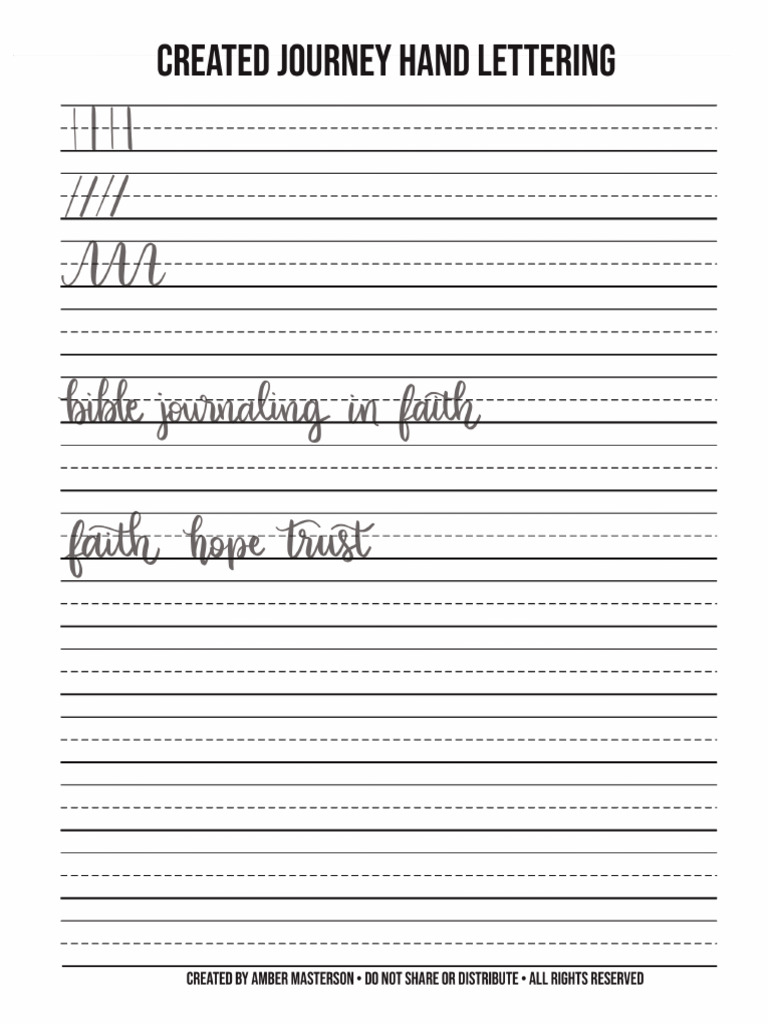 CREATED JOURNEY HAND LETTERING
bible journaling in faith
faith hope trust
CREATED BY AMBER MASTERSON • DO NOT SHARE OR DISTRIBUTE • ALL RIGHTS RESERVED